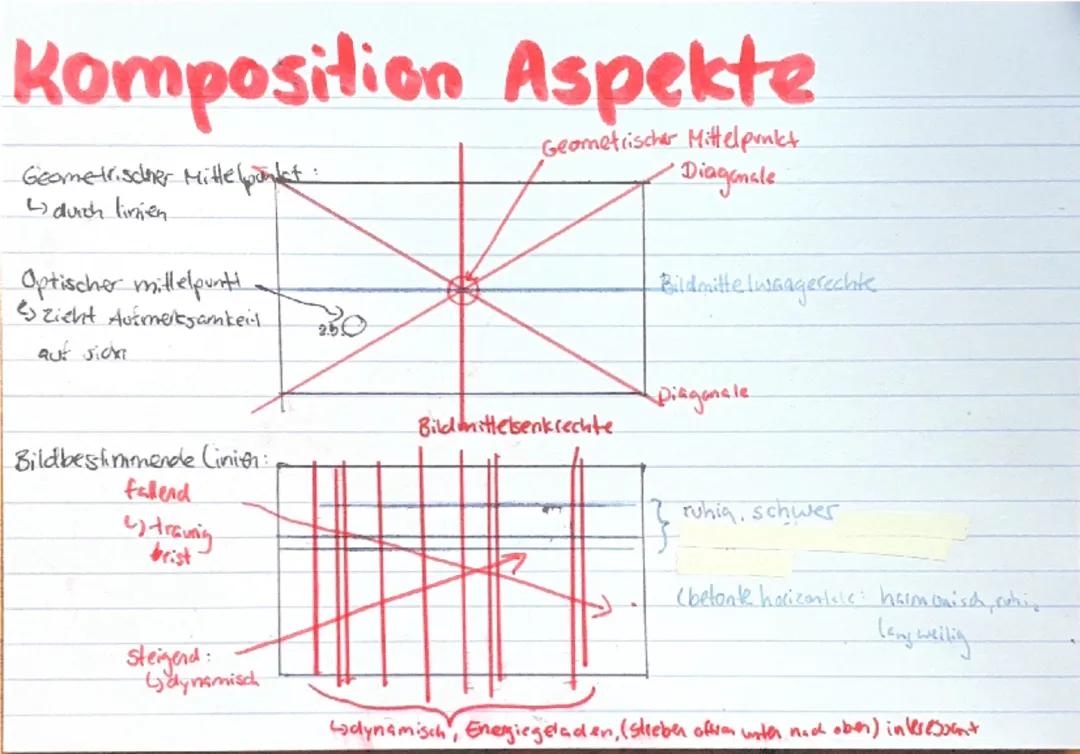 Komposition Aspekte
Geometrischer Mittelpunkt
Diagonale
Geometrischer Mittelpunkt:
↳ durch linien
Optischer mittelpunkt
↳ zieht Aufmerksamkeit
auf sich
z.B.
Bildmittelwaagerechte
Diagonale
Bildmittelsenkrechte
Bildbestimmende Linien:
fallend
↳ traurig
trist
ruhig, schwer
(betonte horizontale: harmonisch, ruhig,
langweilig
Steigend:
↳ dynamisch
↳ dynamisch, Energiegeladen, (streben unten nach oben) interessant